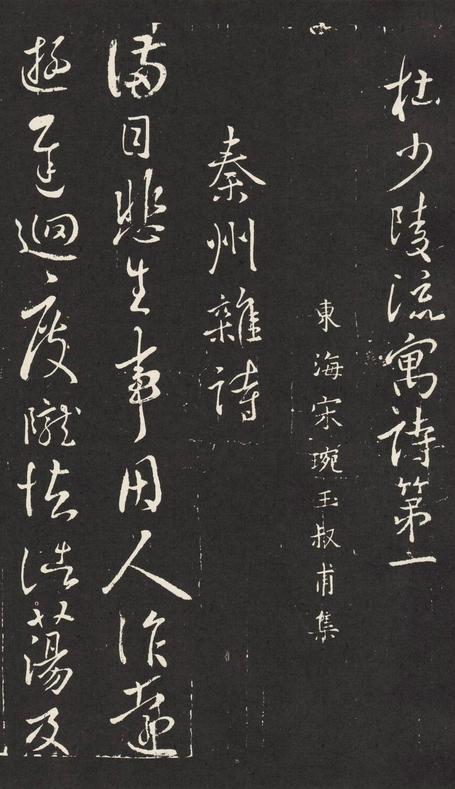 杜少陵流寓詩第一
東海宋琬玉叔甫集
秦州雜詩
滿目悲生事因人作遠
遊遲迴度隴怯浩蕩及